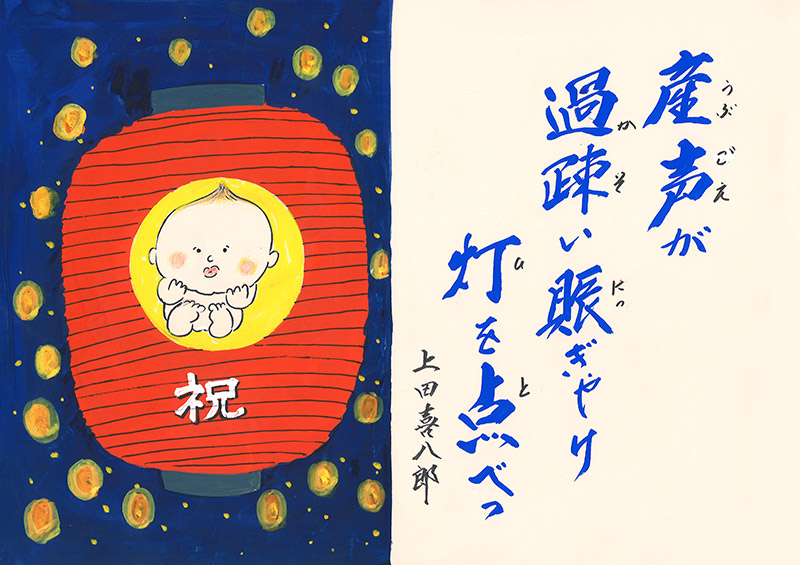 産声が
うぶごえ
過疎い賑ぎやけ
かそ にっ
灯を点べっ
ひ と
上田喜八郎
祝